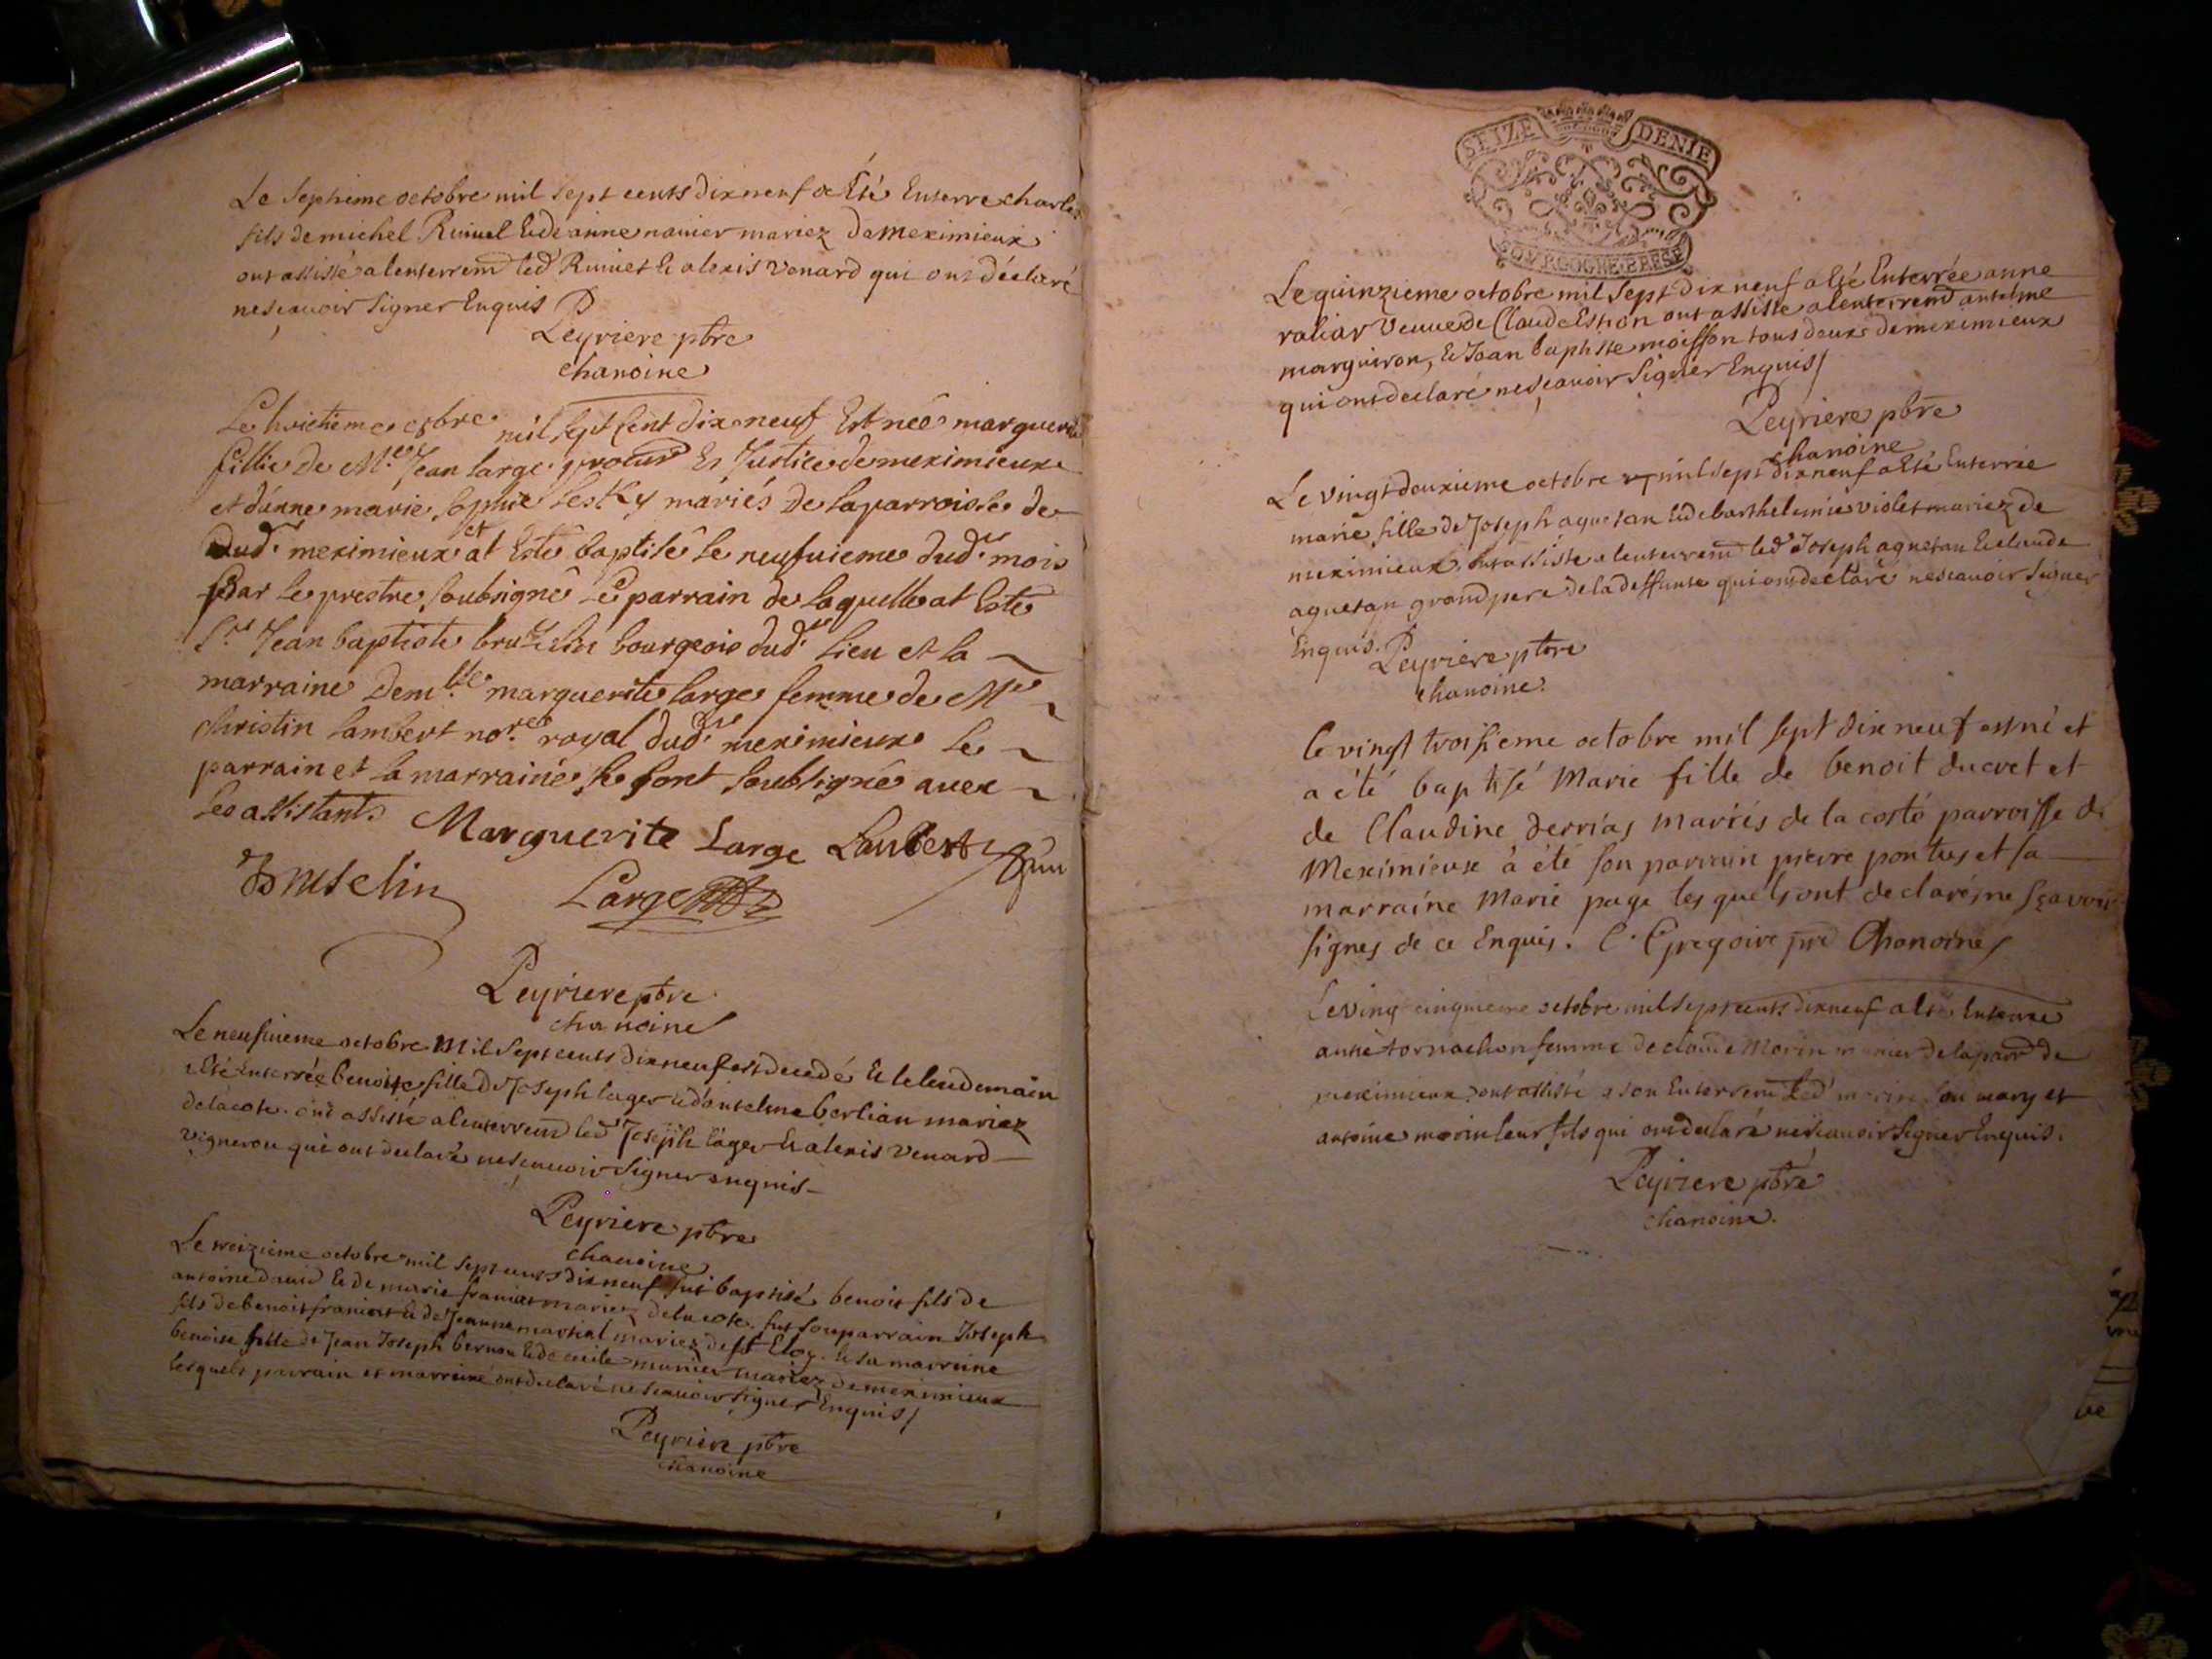 Le septieme octobre mil sept cents dix neuf a Eté Enterre charles
fils de michel Riuiuel & de anne nanier mariez de meximieux
ont assisté a lenterrem led Riuiuet & alexis venard qui ont déclaré
ne sçauoir signer Enquis
Peyriere pbre
chanoine
Le huictieme 8bre mil sept Cent dix neuf Est née marguerite
fillie de Me Jean large procur Es Justice de meximieux
et d'anne marie sophie mariés de la parroisse de
dud. meximieux et at Esté baptisé le neufuieme dud. mois
par le prestre soubsigné Le parrain de laquelle at Esté
Sr Jean baptiste bruzelin bourgeois dud. lieu et la
marraine Demlle marguerite large femme de Me
christin lambert nore royal dud. meximieux le
parrain et la marraine se sont soubsigné auec
les assistants
Marguerite Large Lambert
Bruselin Large
Peyriere pbre
chanoine
Le neufuieme octobre mil sept cents dix neuf est decedé & le lendemain
a Eté Enterrée benoite fille de Joseph lager & d'antelme berlian mariez
de la cote. ont assisté a lenterrem led Joseph lager & alexis venard
vigneron qui ont declaré ne sçauoir signer enquis
Peyriere pbre
chanoine
Le treizieme octobre mil sept cents dix neuf fut baptisé benoit fils de
antoine dauid & de marie framet mariez de la cote. fut son parrain Joseph
fils de benoit framet & de Jeanne martial mariez de St Eloy. & sa marreine
benoite fille de Jean Joseph bernou & de cecile munier mariez de meximieux
lesquels parrain et marreine ont declaré ne scauoir signer Enquis
Peyriere pbre
chanoine
SEIZE DENIE
BOURGOGNE BRESSE
Le quinzieme octobre mil sept dix neuf a Eté Enterrée anne
raliar veuue de Claude Estion ont assisté a lenterrem antelme
marguiron, & Jean baptiste moisson tous deux de meximieux
qui ont declaré ne sçauoir signer Enquis
Peyriere pbre
chanoine
Le vingt deuxieme octobre mil sept dix neuf a Eté Enterrée
marie fille de Joseph aguetan & de barthelemie violet mariez de
meximieux. ont assisté a lenterrem led Joseph aguetan & claude
aguetan grand pere de la deffunte qui ont declaré ne scauoir signer
Enquis. Peyriere pbre
chanoine.
le vingt troisieme octobre mil sept dix neuf est né et
a été baptisé Marie fille de benoit ducret et
de Claudine derrias mariés de la coste parroisse de
Meximieux a été son parrain pierre pontus et sa
marraine Marie page lesquels ont declaré ne sçavoir
signes de ce Enquis. C. Gregoire pre Chanoine
Le vingt cinquieme octobre mil sept cents dix neuf a Eté Enterree
anne tornachon femme de claude Morin de la parr de
meximieux. ont assisté a son Enterrem led morin son mary et
antoine morin leur fils qui ont declaré ne scauoir signer Enquis.
Peyriere pbre
chanoine.